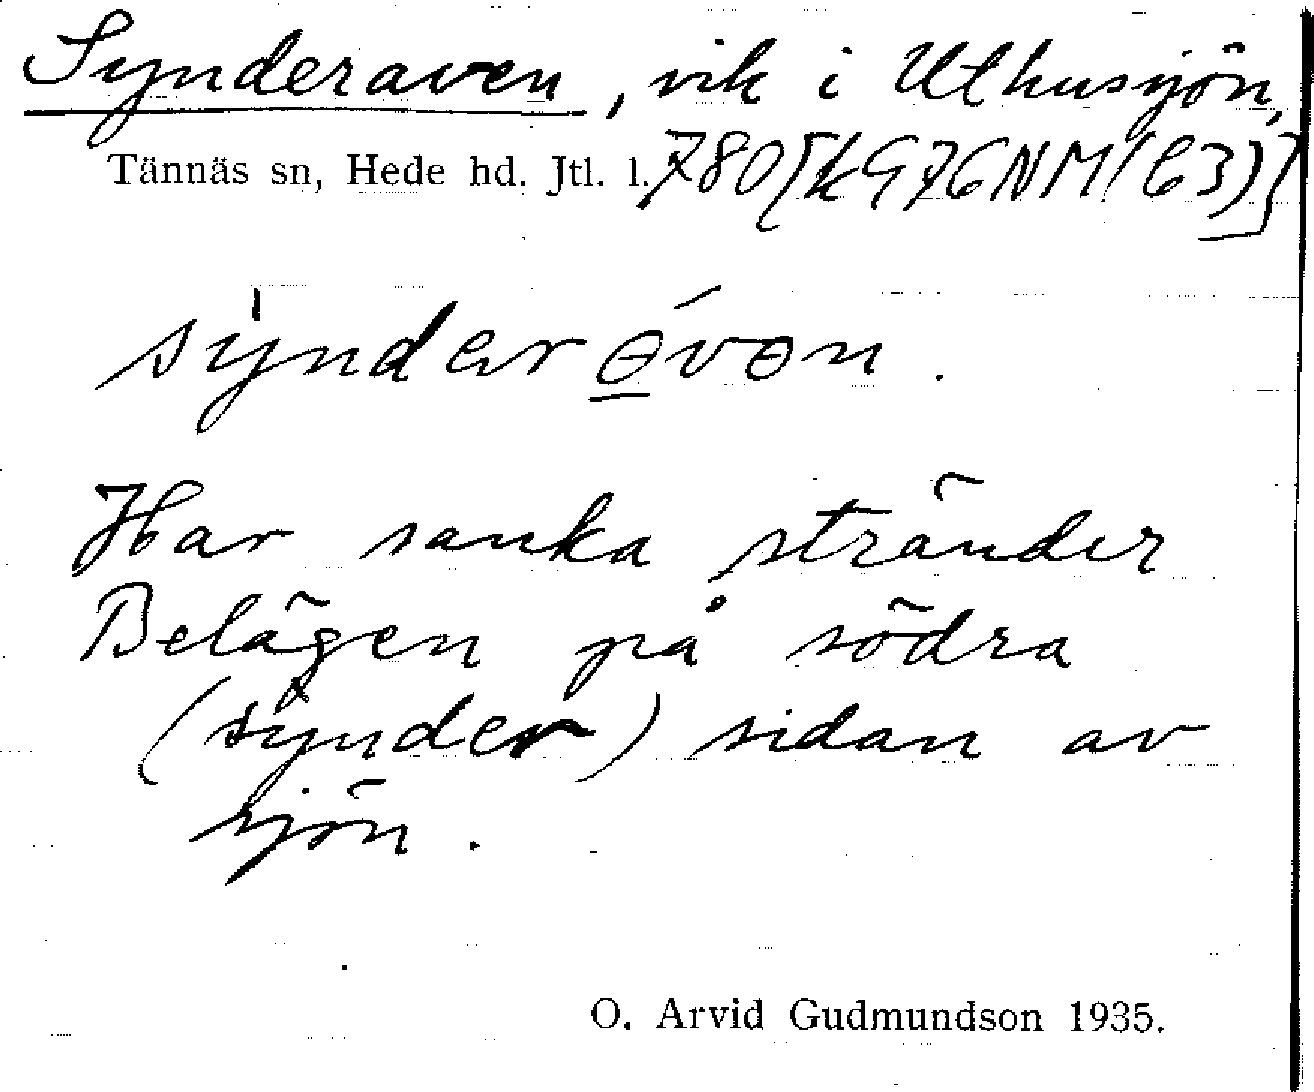 Synderaven, vik i Uthusjön,
Tännäs sn, Hede hd. Jtl. l. 780
synderɵvɵn.
Har sanka stränder
Belägen på södra
(synder) sidan av
sjön.
O. Arvid Gudmundson 1935.